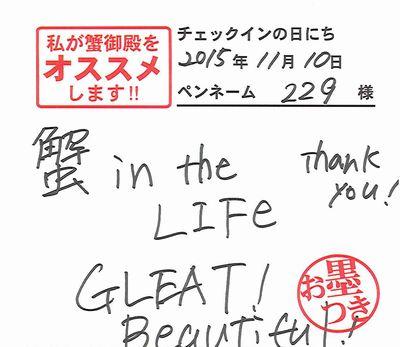 私が蟹御殿を
オススメ
します!!
チェックインの日にち
2015年 11月 10日
ペンネーム 229 様
蟹 in the
LIFe
Thank
you!
GLEAT!
Beautiful!
お墨
つき